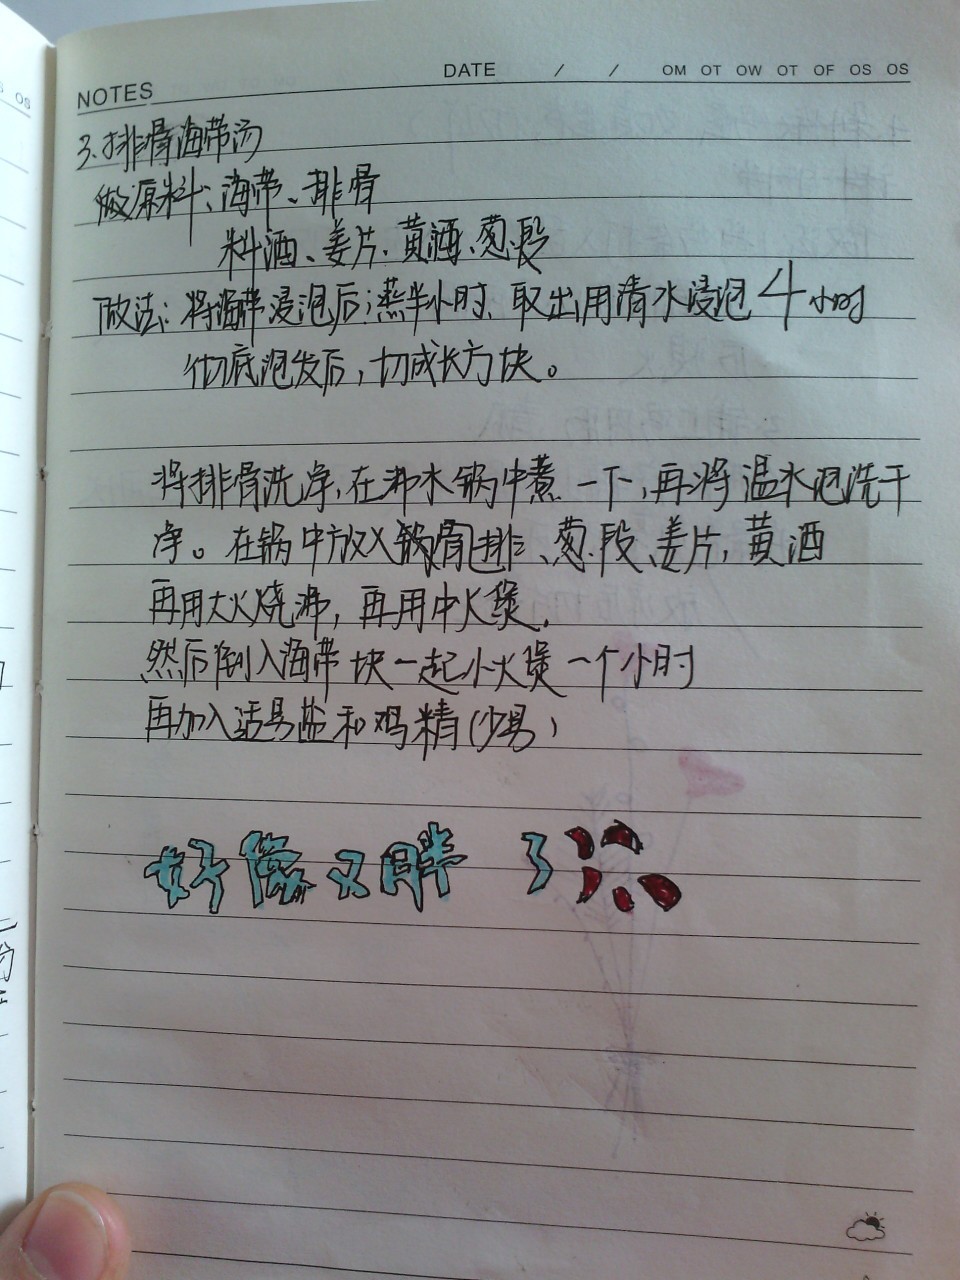 NOTES
DATE / / OM OT OW OT OF OS OS
3.排骨海带汤
做原料:海带、排骨
料酒、姜片.黄酒.葱.段
做法:将海带浸泡后;蒸半小时.取出用清水浸泡4小时
彻底泡发后,切成长方块。
将排骨洗净,在沸水锅中煮一下,再将温水泡洗干
净。在锅中放入骨排、葱.段、姜片,黄酒
再用大火烧沸,再用中火煲.
然后倒入海带块一起小火煲一个小时
再加入适易盐和鸡精(少易)
好像又胖了